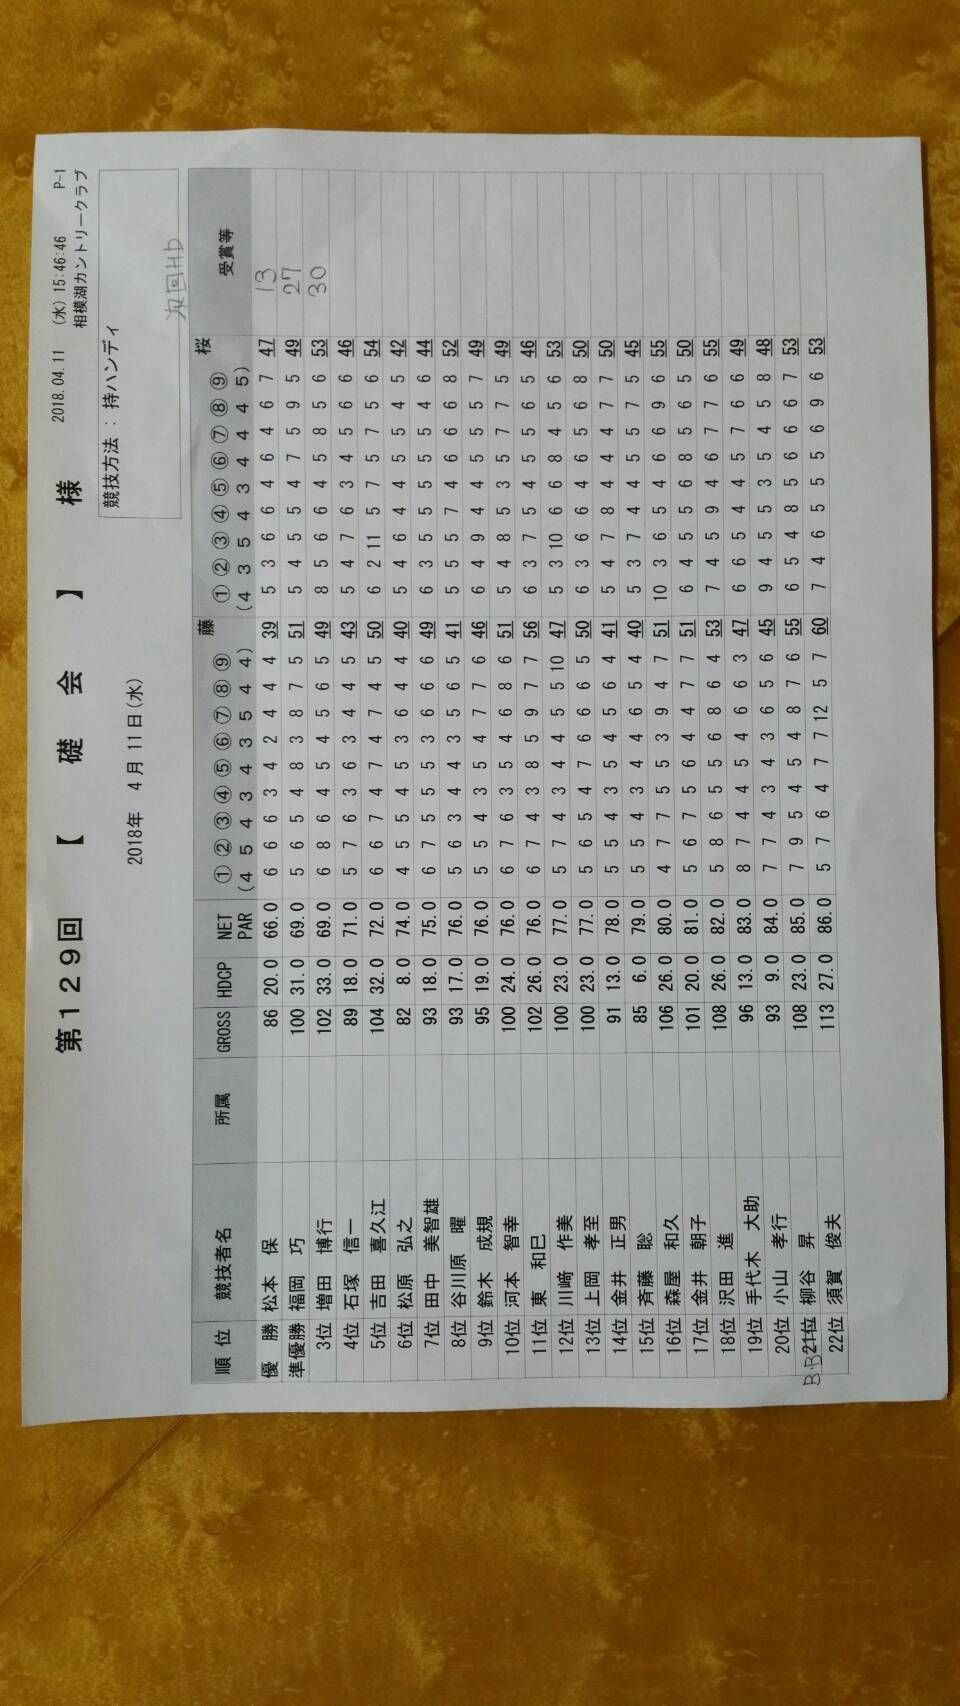 第１２９回　【　礎　会　】　様
2018.04.11 (水) 15:46:46 P-1
相模湖カントリークラブ
2018年 4月11日(水)
競技方法 : 持ハンディ
次回HD
順位 競技者名 所属 GROSS HDCP NET 藤 桜 受賞等
① ② ③ ④ ⑤ ⑥ ⑦ ⑧ ⑨ ① ② ③ ④ ⑤ ⑥ ⑦ ⑧ ⑨
PAR (4 5 4 3 4 3 5 4 4) (4 3 5 4 3 4 4 4 5)
優　勝 松本　保 86 20.0 66.0 6 6 6 3 4 2 4 4 4 39 5 3 6 6 4 6 4 6 7 47 13
準優勝 福岡　巧 100 31.0 69.0 5 6 5 4 8 3 8 7 5 51 5 4 5 5 4 7 5 9 5 49 27
3位 増田　博行 102 33.0 69.0 6 8 6 4 5 4 5 6 5 49 8 5 6 6 4 5 8 5 6 53 30
4位 石塚　信一 89 18.0 71.0 5 7 6 3 6 3 4 4 5 43 5 4 7 6 3 4 5 6 6 46
5位 吉田　喜久江 104 32.0 72.0 6 6 7 4 7 4 7 4 5 50 6 2 11 5 7 5 7 5 6 54
6位 松原　弘之 82 8.0 74.0 4 5 5 4 5 3 6 4 4 40 5 4 6 4 4 5 5 4 5 42
7位 田中　美智雄 93 18.0 75.0 6 7 5 5 5 3 6 6 6 49 6 3 5 5 5 5 5 4 6 44
8位 谷川原　曜 93 17.0 76.0 5 6 3 4 4 3 5 6 5 41 5 5 5 7 4 6 6 6 8 52
9位 鈴木　成規 95 19.0 76.0 5 5 4 3 5 4 7 7 6 46 6 4 9 4 4 5 5 5 7 49
10位 河本　智幸 100 24.0 76.0 6 7 6 3 5 4 6 8 6 51 5 4 8 5 3 5 7 7 5 49
11位 東　和巳 102 26.0 76.0 6 7 4 3 8 5 9 7 7 56 6 3 7 5 4 5 5 6 5 46
12位 川﨑　作美 100 23.0 77.0 5 7 4 3 4 4 5 5 10 47 5 3 10 6 6 8 4 5 6 53
13位 上岡　孝至 100 23.0 77.0 5 6 5 4 7 6 6 6 5 50 6 3 6 6 4 6 5 6 8 50
14位 金井　正男 91 13.0 78.0 5 5 4 3 5 4 5 6 4 41 5 4 7 8 4 4 4 7 7 50
15位 斉藤　聡 85 6.0 79.0 5 5 4 3 4 4 6 5 4 40 5 3 7 4 4 5 5 7 5 45
16位 森屋　和久 106 26.0 80.0 4 7 7 5 5 3 9 4 7 51 10 3 6 5 4 6 6 9 6 55
17位 金井　朝子 101 20.0 81.0 5 6 7 5 6 4 4 7 7 51 6 4 5 5 6 8 5 6 5 50
18位 沢田　進 108 26.0 82.0 5 8 6 5 5 6 8 6 4 53 7 4 5 9 4 6 7 7 6 55
19位 手代木　大助 96 13.0 83.0 8 7 4 4 5 4 6 6 3 47 6 6 5 4 4 5 7 6 6 49
20位 小山　孝行 93 9.0 84.0 7 7 4 3 4 3 6 5 6 45 9 4 5 5 3 5 4 5 8 48
B.B 21位 柳谷　昇 108 23.0 85.0 7 9 5 4 5 4 8 7 6 55 6 5 4 8 5 6 6 6 7 53
22位 須賀　俊夫 113 27.0 86.0 5 7 6 4 7 7 12 5 7 60 7 4 6 5 5 5 6 9 6 53